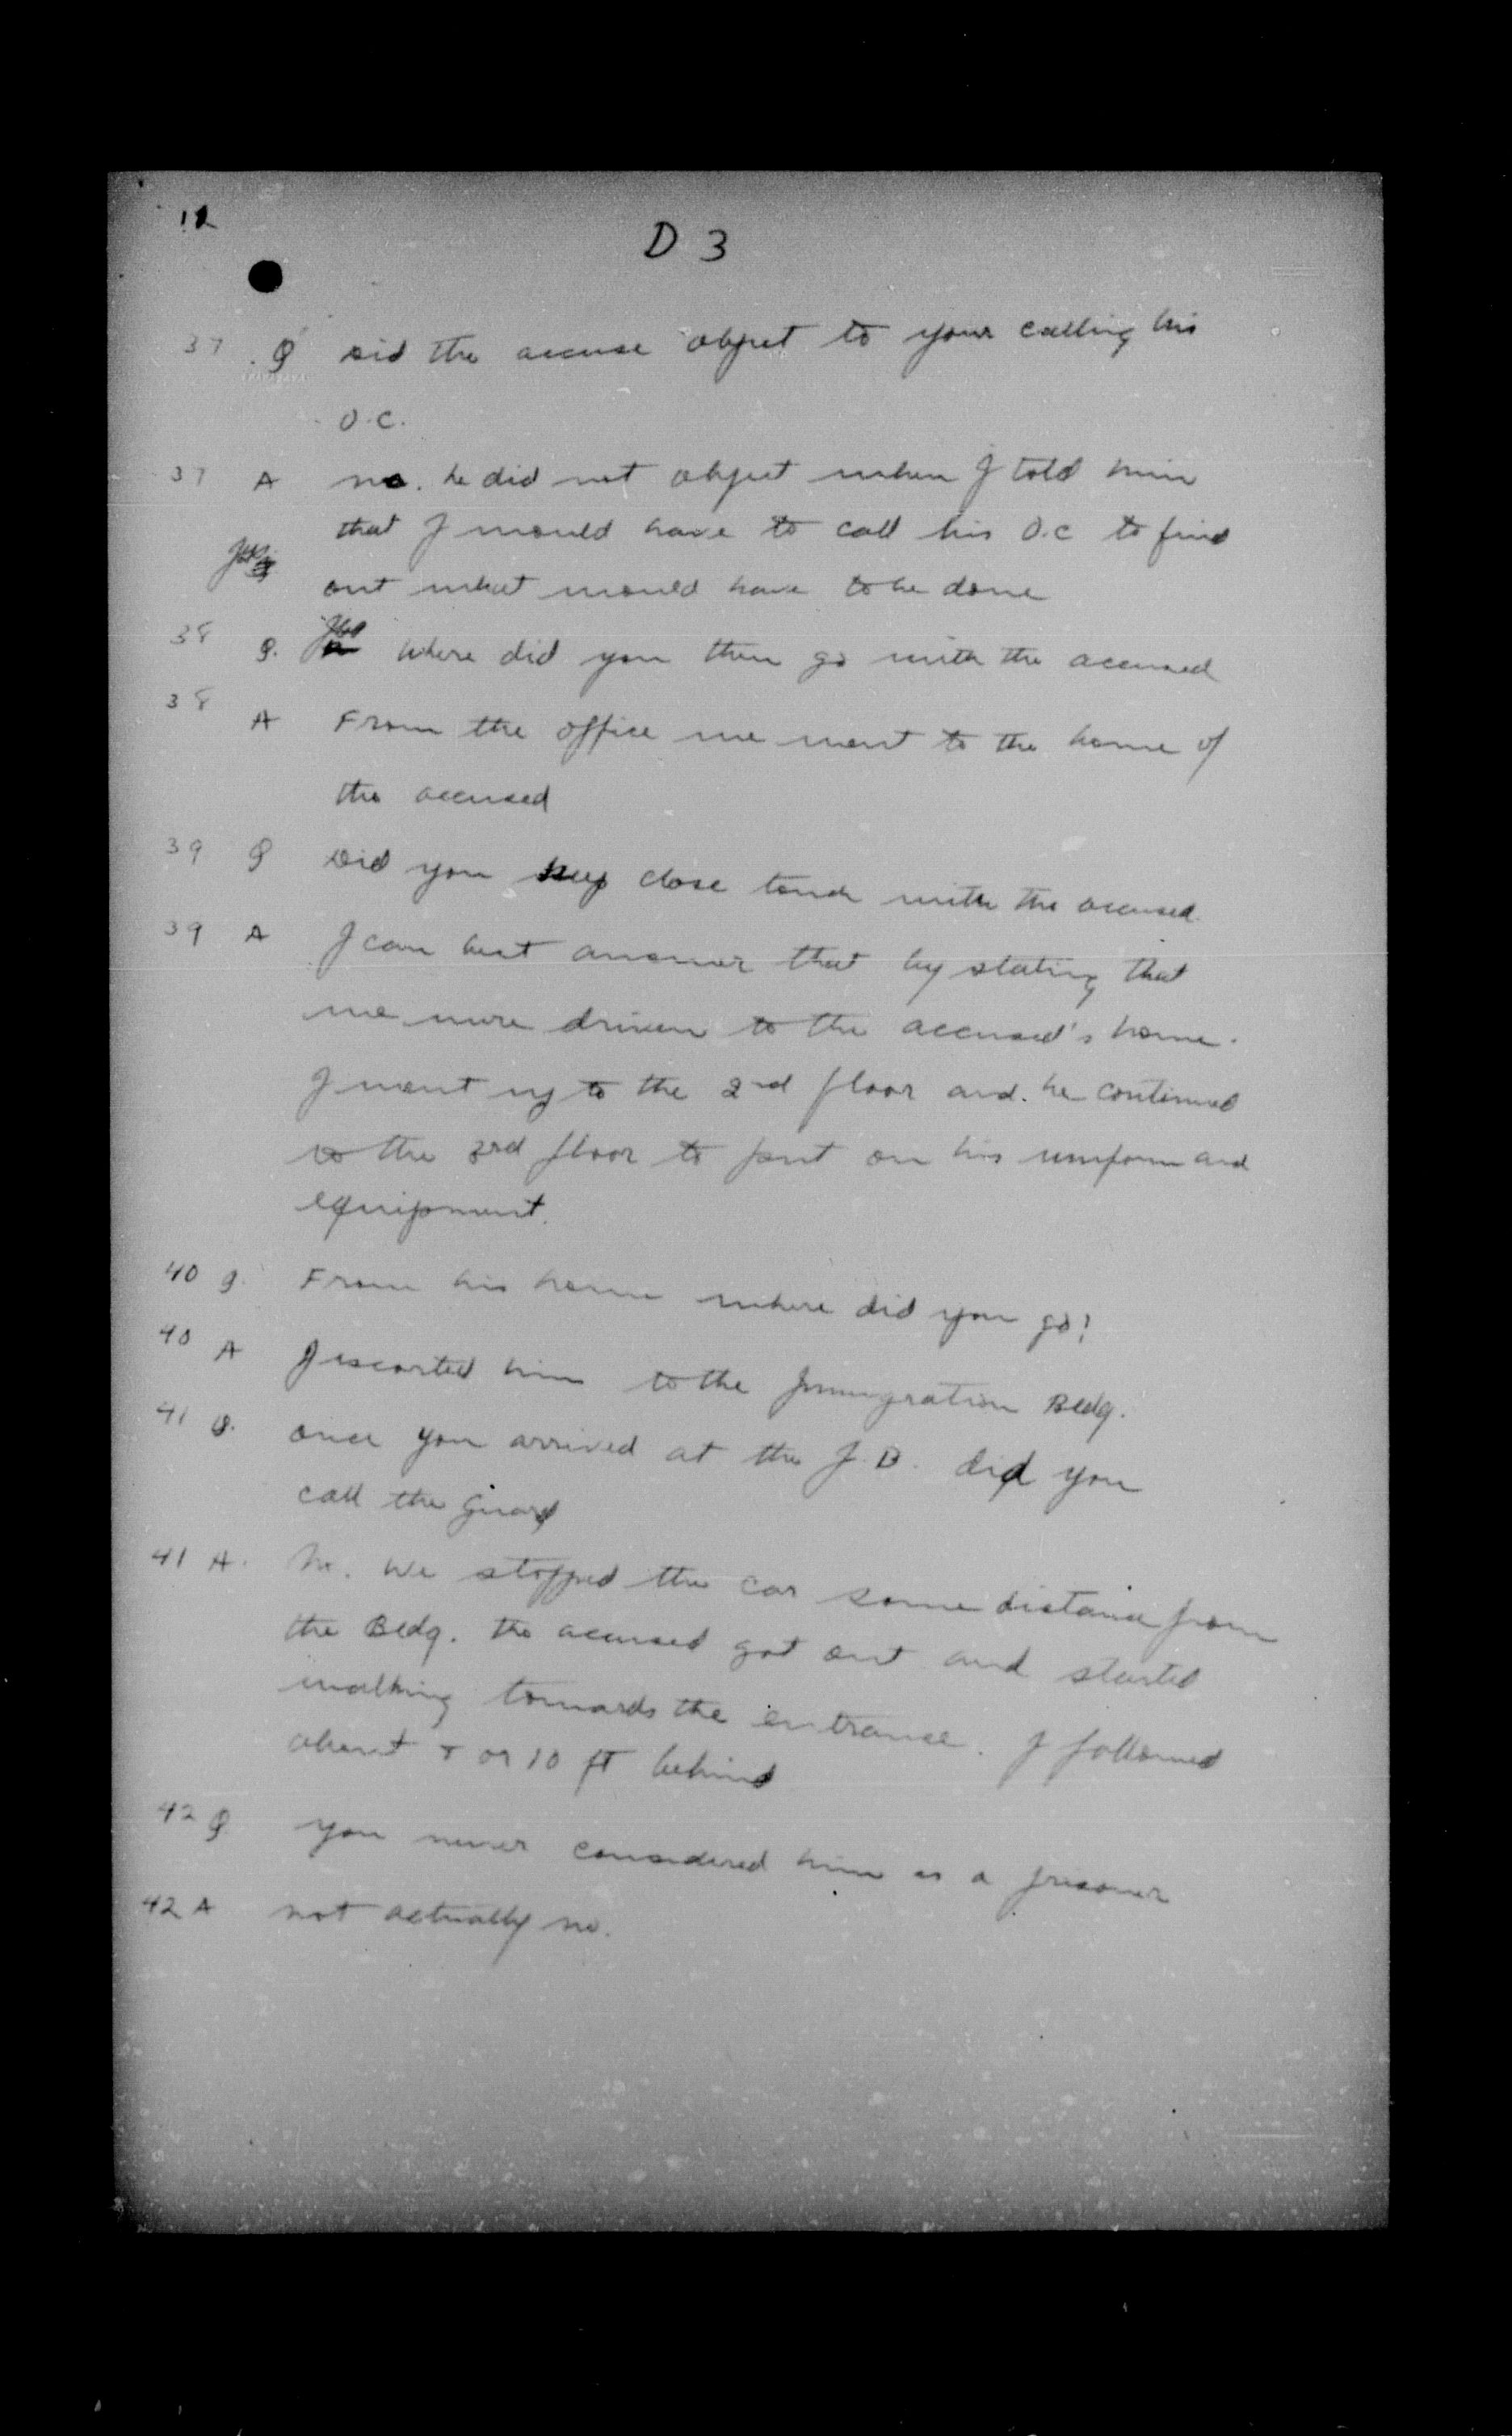 12
D 3
37 Q Did the accuse object to your calling his
O.C.
37 A no. he did not object when I told him
that I would have to call his O.C to find
out what would have to be done
38 Q. Where did you then go with the accused
38 A From the office we went to the home of
the accused
39 Q Did you keep close touch with the accused.
39 A I can best answer that by stating that
we were driven to the accused's home.
I went up to the 2nd floor and he continued
to the 3rd floor to put on his uniform and
equipment.
40 Q. From his home where did you go?
40 A I escorted him to the Immigration Bldg.
41 Q. once you arrived at the I.B. did you
call the guard
41 A. No. We stopped the car some distance from
the Bldg. the accused got out and started
walking towards the entrance. I followed
about 8 or 10 ft behind
42 Q you never considered him as a prisoner
42 A not actually no.